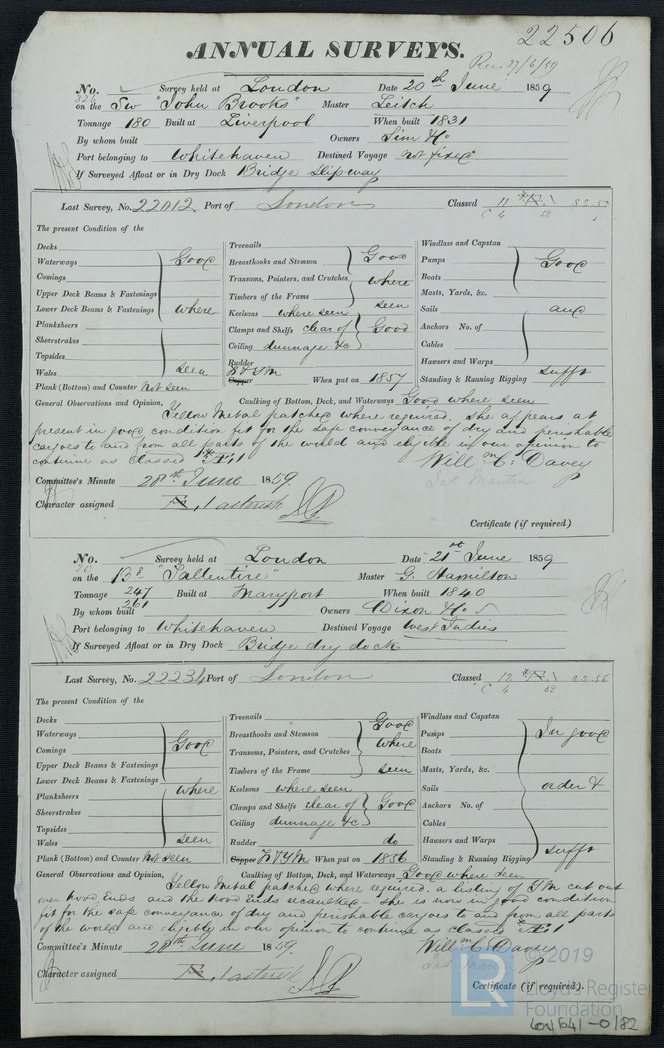 22506
ANNUAL SURVEYS.
Rec 27/6/59
No. Survey held at London Date 20th June 1859
326 on the Sw "John Brooks" Master Leitch
Tonnage 180 Built at Liverpool When built 1831
By whom built Owners Sim & Co
Port belonging to Whitehaven Destined Voyage not fixed
If Surveyed Afloat or in Dry Dock Bridge Slipway
Last Survey, No. 22012 Port of London Classed 11
The present Condition of the
Decks
Waterways Good
Comings
Upper Deck Beams & Fastenings
Lower Deck Beams & Fastenings where
Planksheers
Sheerstrakes
Topsides
Wales seen
Plank (Bottom) and Counter Not seen
Treenails
Breasthooks and Stemson Good
Transoms, Pointers, and Crutches where
Timbers of the Frame seen
Keelsons where seen
Clamps and Shelfs clear of Good
Ceiling dunnage &c
Rudder
Copper F & YM When put on 1857
Windlass and Capstan
Pumps Good
Boats
Masts, Yards, &c.
Sails and
Anchors No. of
Cables
Hawsers and Warps
Standing & Running Rigging sufft
General Observations and Opinion, Caulking of Bottom, Deck, and Waterways Good where seen
Yellow Metal patched where required. She appears at
present in good condition fit for the safe conveyance of dry and perishable
cargoes to and from all parts of the world and eligible in our opinion to
continue as classed Æ 1
Willm C. Davey
Jas Martin
Committee's Minute 28th June 1859.
Character assigned Æ, 1 asterisk
Certificate (if required)
No. Survey held at London Date 21st June 1859
on the Bk "Tallentire" Master G. Hamilton
Tonnage 247 Built at Maryport When built 1840
261
By whom built Owners Dixon & Co
Port belonging to Whitehaven Destined Voyage West Indies
If Surveyed Afloat or in Dry Dock Bridge dry dock
Last Survey, No. 22234 Port of London Classed 12
The present Condition of the
Decks
Waterways
Comings Good
Upper Deck Beams & Fastenings
Lower Deck Beams & Fastenings
Planksheers where
Sheerstrakes
Topsides
Wales seen
Plank (Bottom) and Counter Not seen
Treenails Good
Breasthooks and Stemson
Transoms, Pointers, and Crutches where
Timbers of the Frame seen
Keelsons where seen
Clamps and Shelfs clear of Good
Ceiling dunnage &c
Rudder do
Copper F & YM When put on 1856
Windlass and Capstan
Pumps In good
Boats
Masts, Yards, &c.
Sails order &
Anchors No. of
Cables
Hawsers and Warps
Standing & Running Rigging sufft
General Observations and Opinion, Caulking of Bottom, Deck, and Waterways Good where seen
Yellow Metal patched where required. a listing of YM cut out
over hood Ends and the hood Ends recaulked - she is now in good condition
fit for the safe conveyance of dry and perishable cargoes to and from all parts
of the world and eligible in our opinion to continue as classed Æ 1
Willm C. Davey
Jas Martin
Committee's Minute 28th June 1859.
Character assigned Æ, 1 asterisk
Certificate (if required).
©2019
LR
Lloyd's Register
Foundation